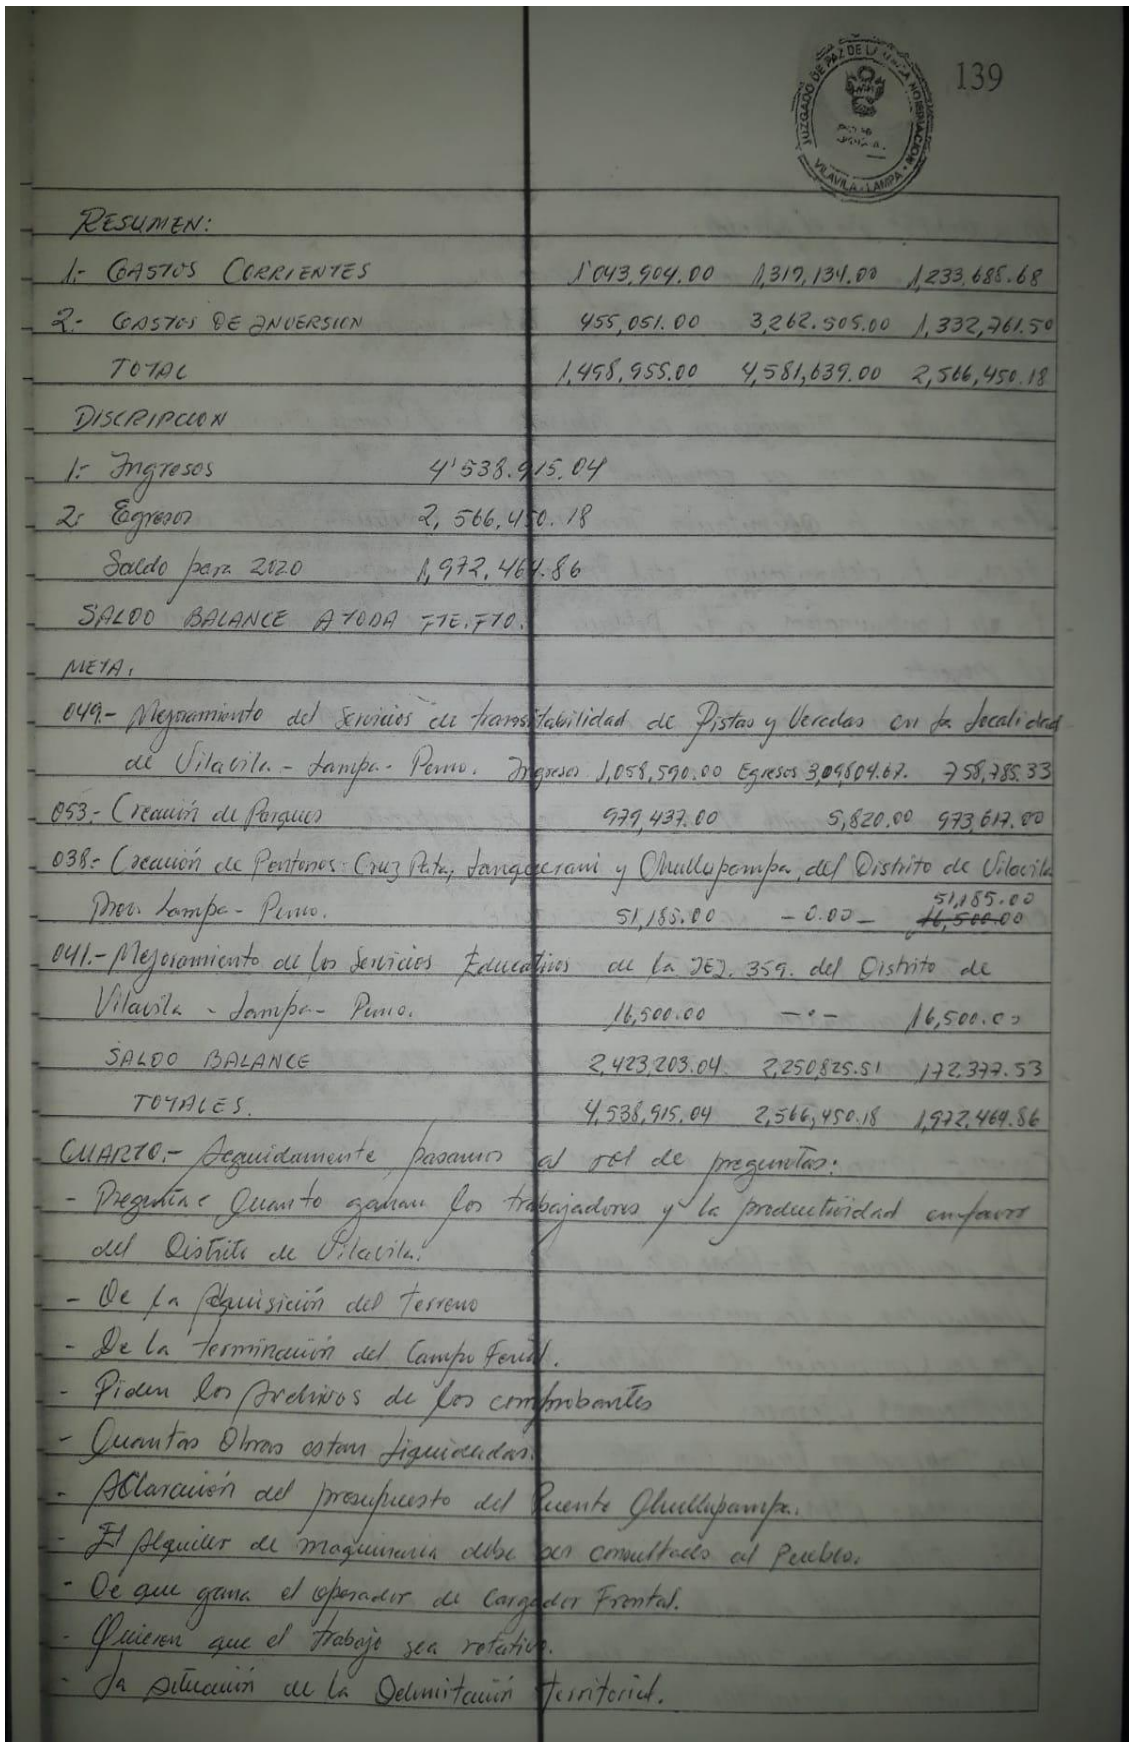 139
JUZGADO DE PAZ DE LA
VILAVILA - LAMPA
RESUMEN:
1.- GASTOS CORRIENTES 1'043,904.00 1,319,134.00 1,233,688.68
2.- GASTOS DE INVERSION 455,051.00 3,262.505.00 1,332,761.50
TOTAL 1,498,955.00 4,581,639.00 2,566,450.18
DISCRIPCION
1.- Ingresos 4'538.915.04
2.- Egresos 2,566,450.18
Saldo para 2020 1,972,464.86
SALDO BALANCE A TODA FTE.FTO.
META:
049.- Mejoramiento del Servicios de transitabilidad de Pistas y Veredas en la Localidad
de Vilavila - Lampa - Puno. Ingresos 1,058,590.00 Egresos 3,09,804.67. 758,785.33
053.- Creación de Parques 979,437.00 5,820.00 973,617.00
038.- Creación de Pontones Cruz Pata, y Chullupampa, del Distrito de Vilavila
51,185.00
Prov. Lampa - Puno. 51,185.00 - 0.00 - 16,500.00
041.- Mejoramiento de los Servicios Educativos de la IEI. 359. del Distrito de
Vilavila - Lampa - Puno. 16,500.00 - . - 16,500.00
SALDO BALANCE 2,423,203.04. 2,250,825.51 172.377.53
TOTALES. 4,538,915.04 2,566,450.18 1,972,464.86
CUARTO.- Seguidamente pasamos al rol de preguntas:
- Pregunta: Quanto ganan los trabajadores y la productividad en favor
del Distrito de Vilavila.
- De la Adquisición del terreno
- De la terminación del Campo Ferial.
- Piden los Archivos de los comprobantes
- Quantas Obras estan Liquidadas.
- Aclaración del presupuesto del Puente Chullupampa.
- El Alquiler de maquinaria debe ser consultado al Pueblo.
- De que gana el operador de Cargador Frontal.
- Quieren que el trabajo sea rotativo.
- La situación de la Delimitación territorial.